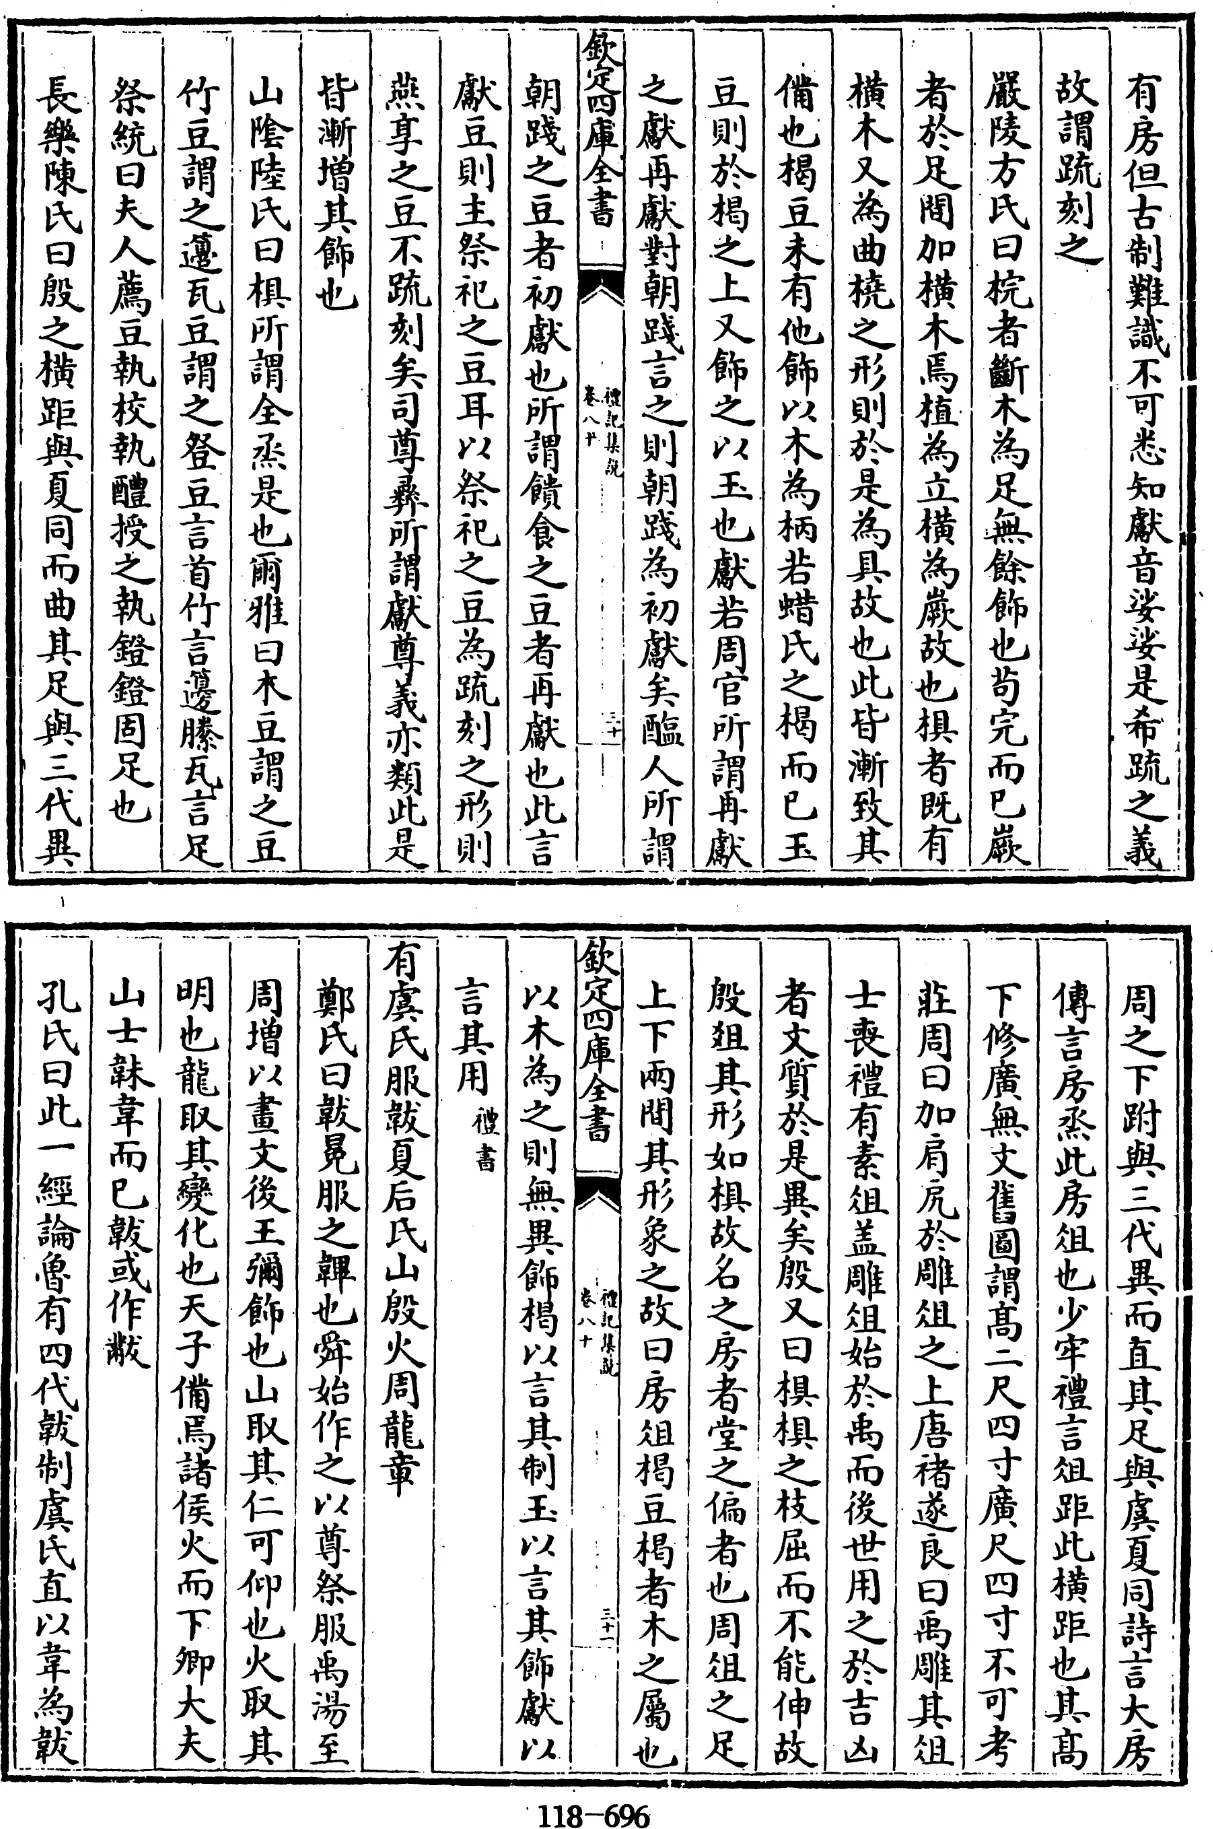 有房但古制難識不可悉知獻音娑娑是希疏之義
故謂疏刻之
嚴陵方氏曰梡者斷木為足無餘飾也苟完而已嶡
者於足間加橫木焉植為立橫為嶡故也椇者既有
橫木又為曲橈之形則於是為具故也此皆漸致其
備也楬豆未有他飾以木為柄若蜡氏之楬而已玉
豆則於楬之上又飾之以玉也獻若周官所謂再獻
之獻再獻對朝踐言之則朝踐為初獻矣醢人所謂
欽定四庫全書
禮記集說
卷八十
三十
朝踐之豆者初獻也所謂饋食之豆者再獻也此言
獻豆則主祭祀之豆耳以祭祀之豆為疏刻之形則
燕享之豆不疏刻矣司尊彝所謂獻尊義亦類此是
皆漸增其飾也
山陰陸氏曰椇所謂全烝是也爾雅曰木豆謂之豆
竹豆謂之籩瓦豆謂之登豆言首竹言籩縢瓦言足
祭統曰夫人薦豆執校執醴授之執鐙鐙固足也
長樂陳氏曰殷之橫距與夏同而曲其足與三代異
周之下跗與三代異而直其足與虞夏同詩言大房
傳言房烝此房俎也少牢禮言俎距此橫距也其高
下修廣無文舊圖謂高二尺四寸廣尺四寸不可考
莊周曰加肩尻於雕俎之上唐褚遂良曰禹雕其俎
士喪禮有素俎蓋雕俎始於禹而後世用之於吉凶
者文質於是異矣殷又曰椇椇之枝屈而不能伸故
殷俎其形如椇故名之房者堂之偏者也周俎之足
上下兩間其形象之故曰房俎楬豆楬者木之屬也
欽定四庫全書
禮記集說
卷八十
三十一
以木為之則無異飾楬以言其制玉以言其飾獻以
言其用禮書
有虞氏服韍夏后氏山殷火周龍章
鄭氏曰韍冕服之韠也舜始作之以尊祭服禹湯至
周增以畫文後王彌飾也山取其仁可仰也火取其
明也龍取其變化也天子備焉諸侯火而下卿大夫
山士韎韋而已韍或作黻
孔氏曰此一經論魯有四代韍制虞氏直以韋為韍
118-696